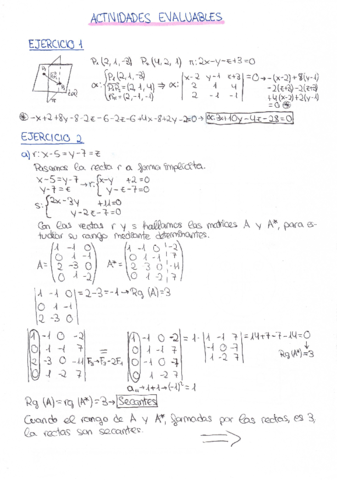 ACTIVIDADES EVALUABLES
EJERCICIO 1
P₁(2,1,-3) P₂(4,2,1) π: 2x-y-z+3=0
EJERCICIO 2
a) r: x-5=y-7=z
Pasamos la recta r a forma implícita.
x-5=y-7
y-7=z → r: {x-y +2=0
y-z-7=0
s: {2x-3y +11=0
y-2z-7=0
Con las rectas r y s hallamos las matrices A y A*, para es-
tudiar su rango mediante determinantes.
A= (1 -1 0
0 1 -1
2 -3 0
0 1 -2)
A*= (1 -1 0 -2
0 1 -1 7
2 3 0 -11
0 1 -2 7)
|1 -1 0
0 1 -1
2 -3 0| = 2-3=-1 → Rg (A)=3
|1 -1 0 -2
0 1 -1 7
2 -3 0 -11
0 1 -2 7| F₃=F₃-2F₁ = |1 -1 0 -2
0 1 -1 7
0 -1 0 -7
0 1 -2 7| = 1· |1 -1 7
-1 0 -7
1 -2 7| = 14+7-7-14=0
Rg (A*)=3
a₁₁→1+1→(-1)²=1
Rg (A)=rg (A*)=3→ Secantes
Cuando el rango de A y A*, formadas por las rectas, es 3,
la rectas son secantes.